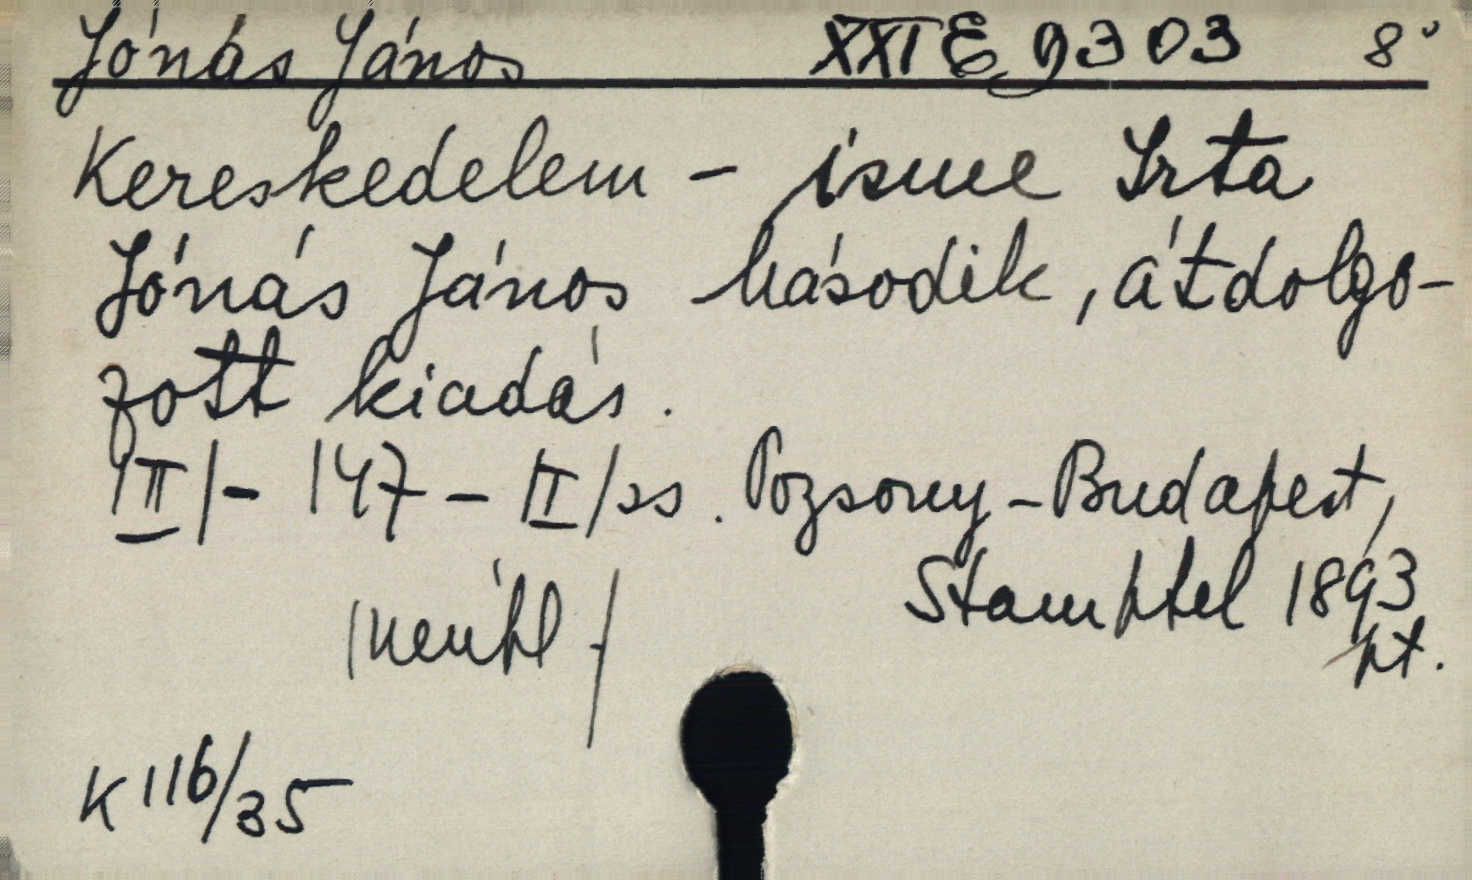 Jónás János XXI E 9303 8°
Kereskedelem - isme Irta
Jónás János Második, átdolgo-
zott kiadás.
/II/ - 147 - II/ss. Pozsony-Budapest,
Stamphel 1893
nt.
K 116/35